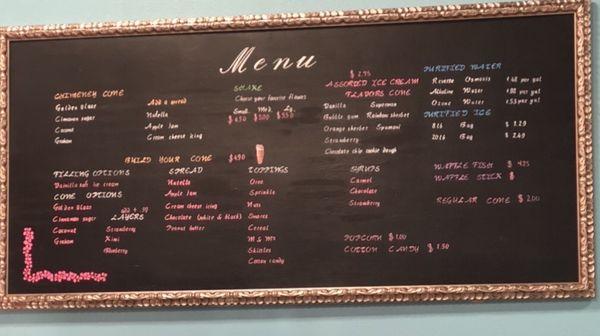 Menu
CHIMENEY CONE
Golden Glaze
Cinnamon sugar
Coconut
Graham
Add a spread
Nutella
Apple Jam
Cream cheese icing
SHAKE
Choose your favorite flavors
Small Med Lg
$4.50 $5.00 $5.50
$2.75
ASSORTED ICE CREAM
FLAVORS CONE
Vanilla Superman
Bubble gum Rainbow sherbet
Orange sherbet Spumoni
Strawberry
Chocolate chip cookie dough
PURIFIED WATER
Reverse Osmosis per gal
Alkaline Water per gal
Ozone Water per gal
PURIFIED ICE
8lb Bag $ 1.29
20lb Bag $ 2.49
BUILD YOUR CONE $6.90
FILLING OPTIONS
Vainilla soft ice cream
CONE OPTIONS
Golden Glaze
Cinnamon sugar
Coconut
Graham
LAYERS
Strawberry
Kiwi
Blueberry
SPREAD
Nutella
Apple Jam
Cream cheese icing
Chocolate (white & black)
Peanut butter
TOPPINGS
Oreo
Sprinkle
Nuts
Smores
Cereal
M & M's
Skittles
Cotton candy
SYRUPS
Carmel
Chocolate
Strawberry
WAFFLE FISH $ 4.25
WAFFLE STICK $
REGULAR CONE $ 2.00
POPCORN $ 1.00
COTTON CANDY $ 1.50